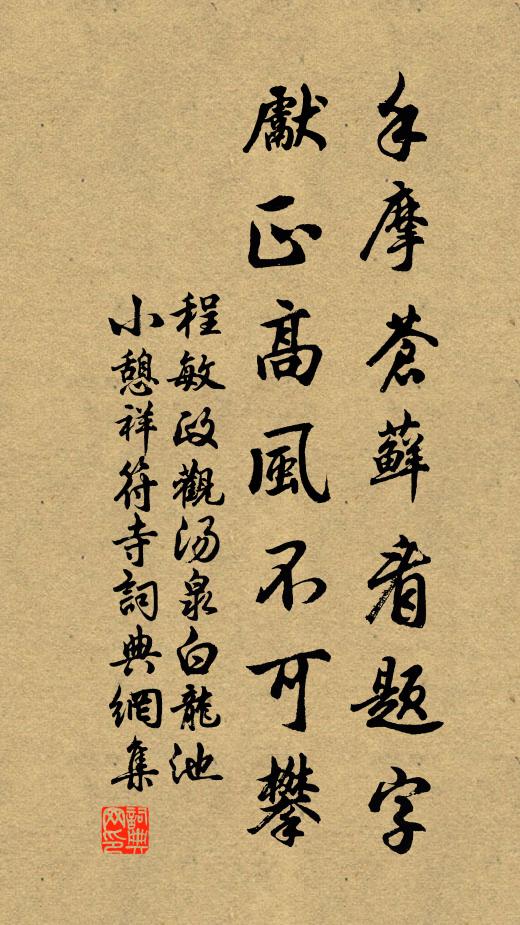 手摩蒼蘚看題字
獻正高風不可攀
程敏政觀湯泉白龍池
小憩祥符寺詞典網集
詞典網印